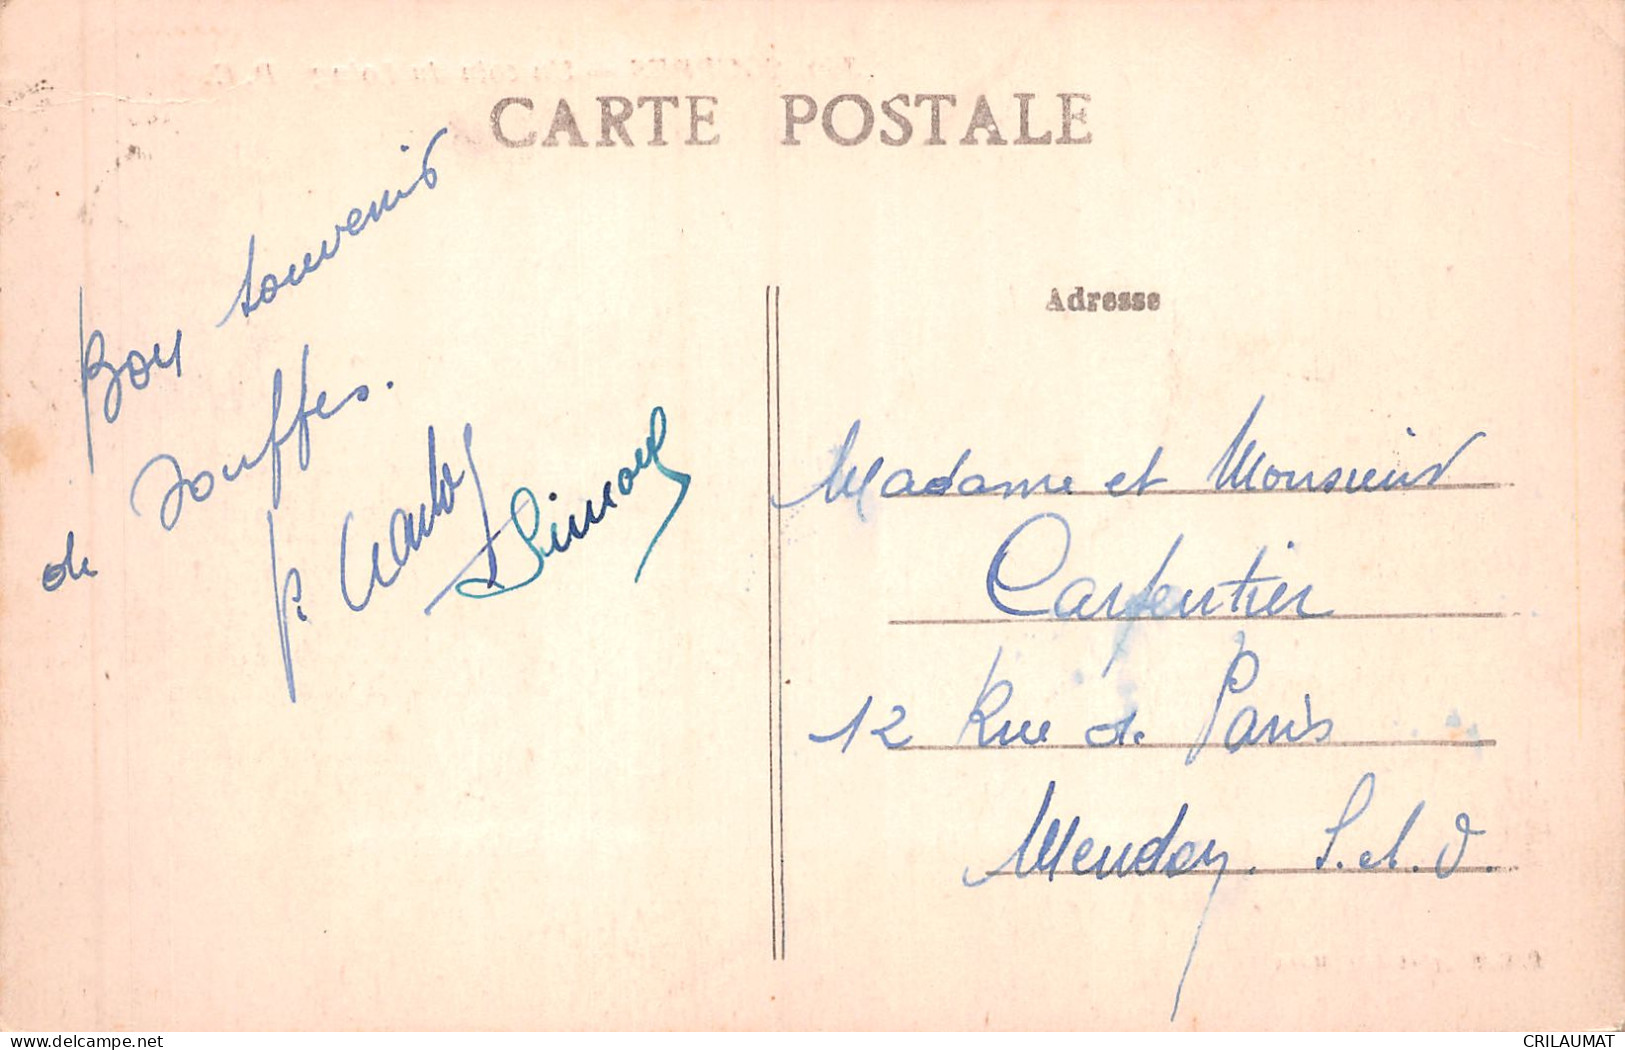 CARTE POSTALE
Bon souvenir
de Jouffes.
Adresse
Madame et Monsieur
Carpentier
12 Rue de Paris
Meudon. S. et. O.
delcampe.net
CRILAUMAT